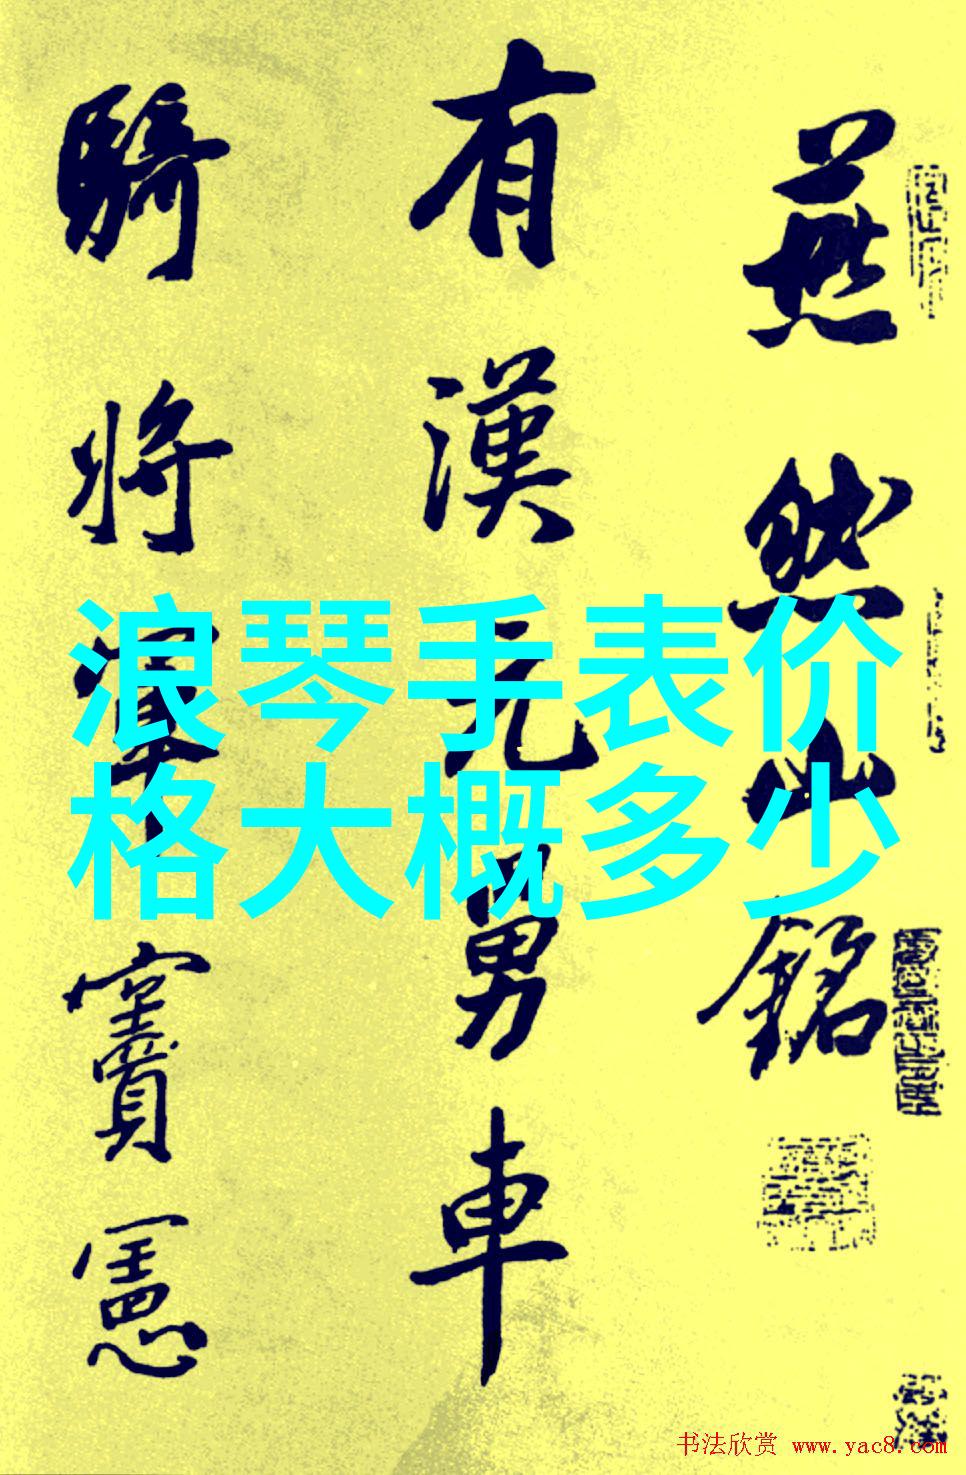 燕然山銘
有漢元舅車
騎將軍竇憲
浪琴手表价
格大概多少
书法欣赏 www.yac8.com